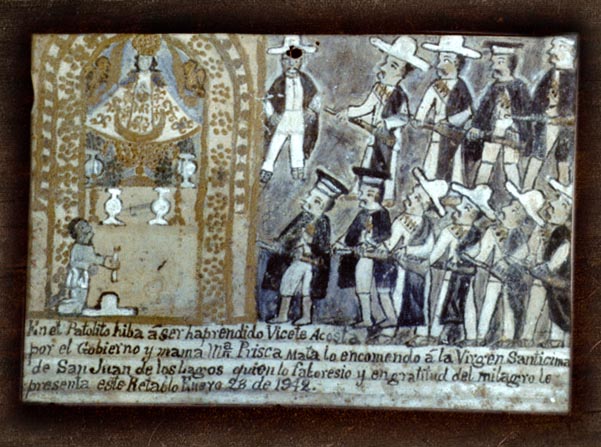 En el Patolito hiba a ser haprendido Vicete Acosta
por el Gobierno y mama Mª Prisca Mata lo encomendo á la Virgen Santicima
de San Juan de los Lagos quien lo faboresio y en gratitud del milagro le
presenta este Retablo Enero 28 de 1942.